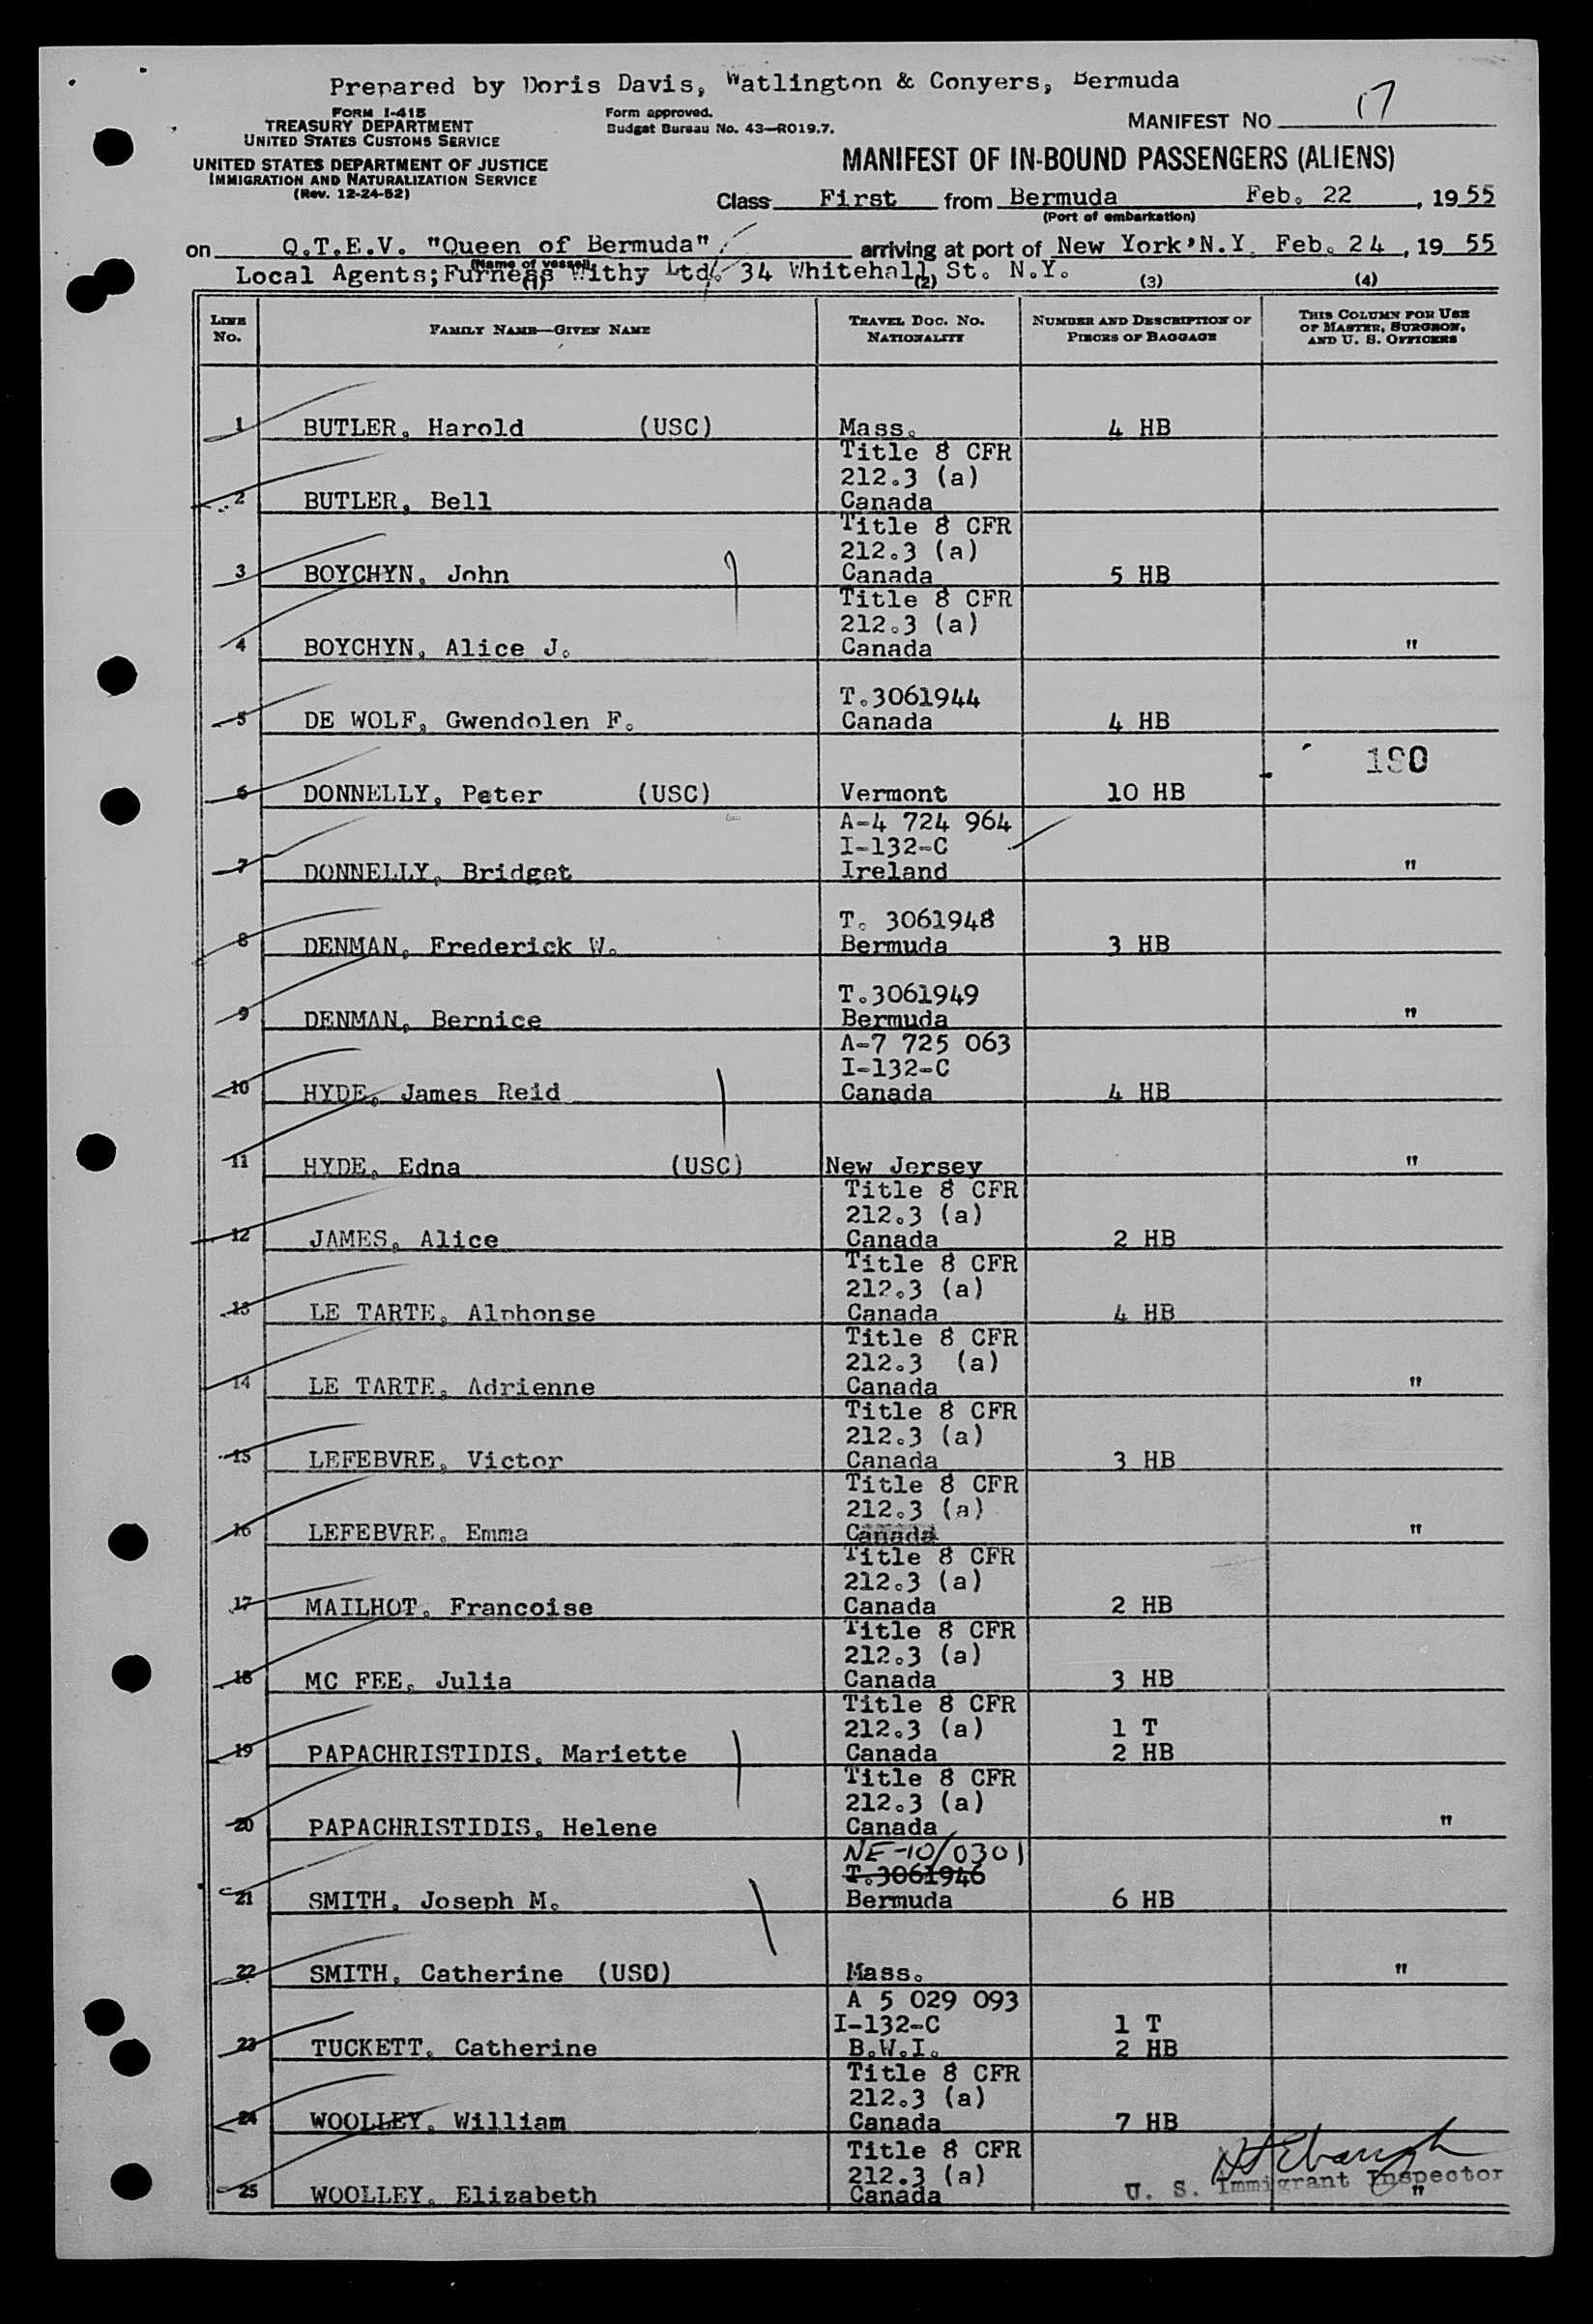 Prepared by Doris Davis, Watlington & Conyers, Bermuda
FORM I-415
TREASURY DEPARTMENT
UNITED STATES CUSTOMS SERVICE
UNITED STATES DEPARTMENT OF JUSTICE
IMMIGRATION AND NATURALIZATION SERVICE
(Rev. 12-24-52)
Form approved.
Budget Bureau No. 43—RO19.7.
MANIFEST NO 17
MANIFEST OF IN-BOUND PASSENGERS (ALIENS)
Class First from Bermuda Feb. 22, 1955
(Port of embarkation)
on Q.T.E.V. "Queen of Bermuda" arriving at port of New York, N.Y. Feb. 24, 19 55
(Name of vessel)
Local Agents; Furness Withy Ltd. 34 Whitehall St. N.Y.
(1) (2) (3) (4)
LINE No. FAMILY NAME—GIVEN NAME TRAVEL DOC. NO. NATIONALITY NUMBER AND DESCRIPTION OF PIECES OF BAGGAGE THIS COLUMN FOR USE OF MASTER, SURGEON, AND U. S. OFFICERS
1 BUTLER, Harold (USC) Mass. 4 HB
Title 8 CFR
212.3 (a)
2 BUTLER, Bell Canada
Title 8 CFR
212.3 (a)
3 BOYCHYN, John Canada 5 HB
Title 8 CFR
212.3 (a)
4 BOYCHYN, Alice J. Canada "
T.3061944
5 DE WOLF, Gwendolen F. Canada 4 HB
190
6 DONNELLY, Peter (USC) Vermont 10 HB
A-4 724 964
I-132-C
7 DONNELLY, Bridget Ireland "
T. 3061948
8 DENMAN, Frederick W. Bermuda 3 HB
T.3061949
9 DENMAN, Bernice Bermuda "
A-7 725 063
I-132-C
10 HYDE, James Reid Canada 4 HB
11 HYDE, Edna (USC) New Jersey "
Title 8 CFR
212.3 (a)
12 JAMES, Alice Canada 2 HB
Title 8 CFR
212.3 (a)
13 LE TARTE, Alphonse Canada 4 HB
Title 8 CFR
212.3 (a)
14 LE TARTE, Adrienne Canada "
Title 8 CFR
212.3 (a)
15 LEFEBVRE, Victor Canada 3 HB
Title 8 CFR
212.3 (a)
16 LEFEBVRE, Emma Canada "
Title 8 CFR
212.3 (a)
17 MAILHOT, Francoise Canada 2 HB
Title 8 CFR
212.3 (a)
18 MC FEE, Julia Canada 3 HB
Title 8 CFR
212.3 (a) 1 T
19 PAPACHRISTIDIS, Mariette Canada 2 HB
Title 8 CFR
212.3 (a)
20 PAPACHRISTIDIS, Helene Canada "
NE-10/0301
T.3061946
21 SMITH, Joseph M. Bermuda 6 HB
22 SMITH, Catherine (USC) Mass. "
A 5 029 093
I-132-C 1 T
23 TUCKETT, Catherine B.W.I. 2 HB
Title 8 CFR
212.3 (a)
24 WOOLLEY, William Canada 7 HB
Title 8 CFR
212.3 (a)
25 WOOLLEY, Elizabeth Canada "
U. S. Immigrant Inspector